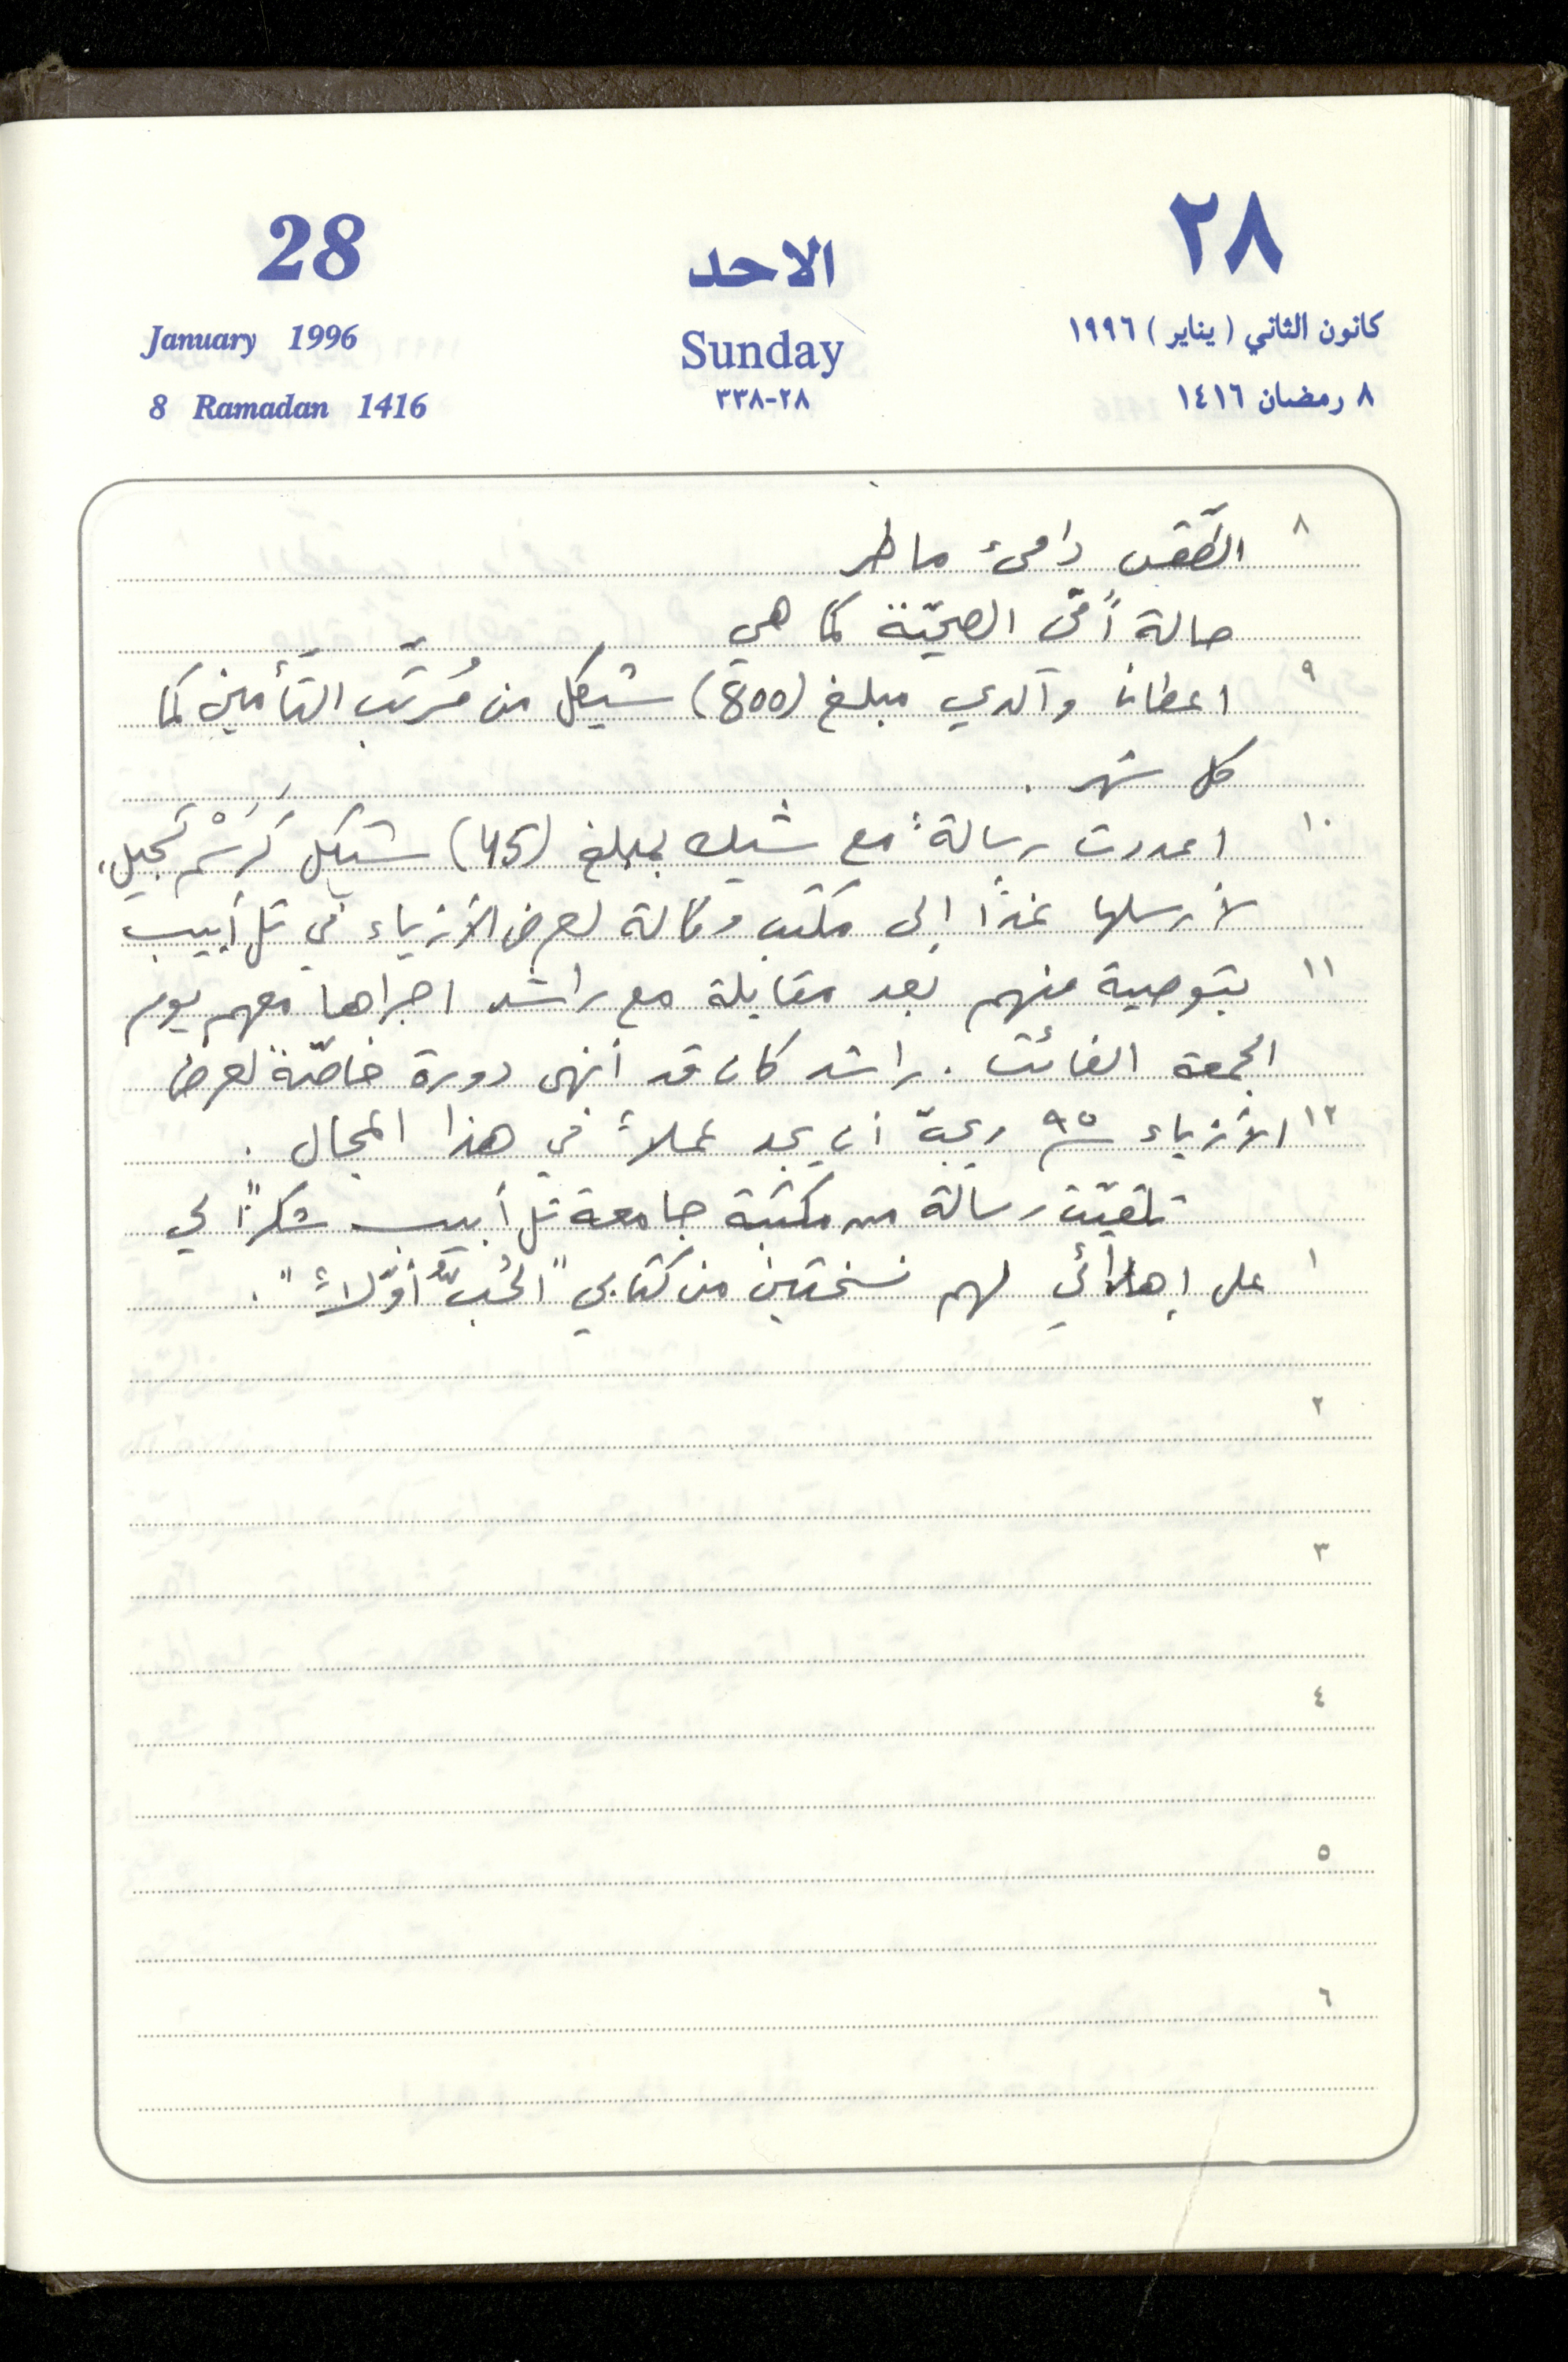 28
الاحد
٢٨
January 1996
Sunday
كانون الثاني (يناير) ١٩٩٦
8 Ramadan 1416
٢٨-٣٣٨
٨ رمضان ١٤١٦
٨ الطّقس دافئ ماطر
حالة أمّي الصحيّة كما هي
٩ اعطانا والدي مبلغ (800) شيكل من مُرتّب التأمين كما
كل شهر.
١٠ اعددت رسالة مع شيك بمبلغ (45) شيكل كَرَسْم تسجيل،
لأرسلها غدًا إلى مكتب وكالة لعرض الأزياء في تل أبيب
١١ بتوصية منهم بعد مقابلة مع راشد اجراها معهم يوم
الجمعة الفائت. راشد كان قد أنهى دورة خاصّة لعرض
١٢ الأزياء ٩٥ ويحبّ أن يجد عملاً في هذا المجال.
تلقيّت رسالة من مكتبة جامعة تل أبيب شكرًا لي
١ على إهدائي لهم نسختين من كتابي "الحُبُّ أوّلاً".
٢
٣
٤
٥
٦